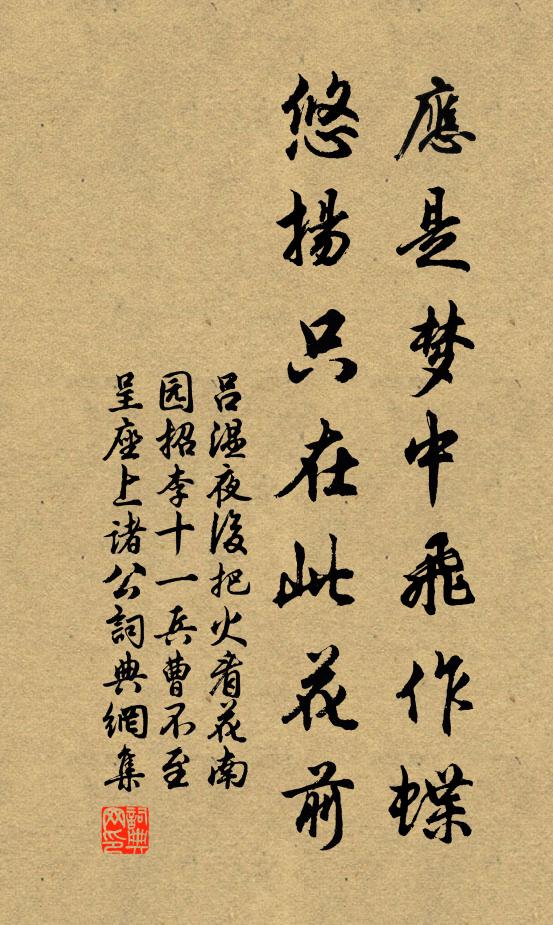 應是梦中飛作蝶
悠揚只在此花前
吕温夜後把火看花南
园招李十一兵曹不至
呈座上诸公詞典網集
詞典
网印